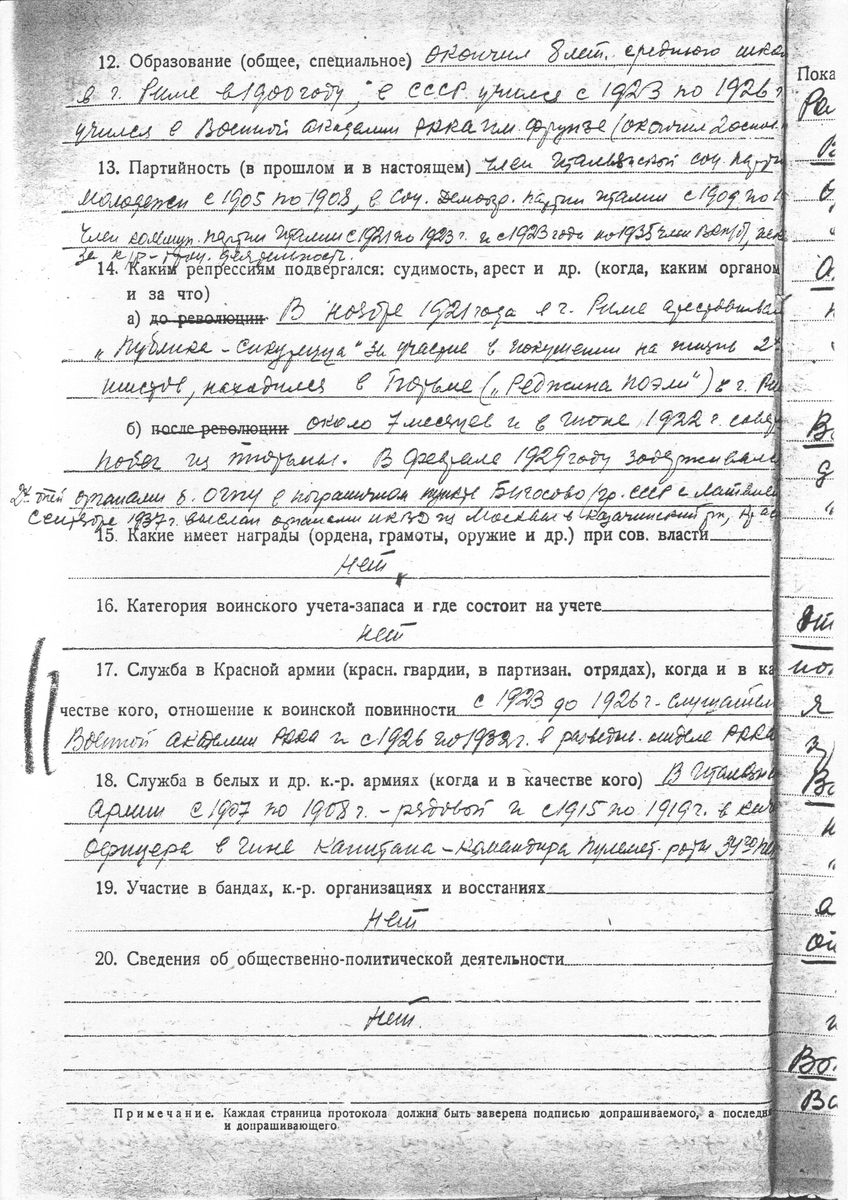 12. Образование (общее, специальное) окончил 8 лет. среднюю шко
в г. Риме в 1900 году, в СССР учился с 1923 по 1926 г
учился в Военной Академии РККА им. Фрунзе (окончил 2 основ.
13. Партийность (в прошлом и в настоящем) член Итальянской соц. парти
молодежи с 1905 по 1908, в соц. демокр. партии Италии с 1909 по 1
член коммун. партии Италии с 1921 по 1923 г. и с 1923 года по 1935 член ВКП(б), иск
за к/р-троц. деятельность.
14. Каким репрессиям подвергался: судимость, арест и др. (когда, каким органом
и за что)
а) до революции В ноябре 1921 года в г. Риме арестовывал
„Публика-Сикурецца" за участие в покушении на жизнь 2х
шистов, находился в тюрьме („Реджина Поэли") в г. Ри
б) после революции около 7 месяцев и в июне 1922 г. совер
побег из тюрьмы. В феврале 1929 году задерживал
2 дня органами б. ОГПУ в пограничном пункте Бигосово /гр. СССР с Латвией
Сентябре 1937 г. выслан органами НКВД из Москвы в Казачинский р-н, Крас
15. Какие имеет награды (ордена, грамоты, оружие и др.) при сов. власти
Нет
16. Категория воинского учета-запаса и где состоит на учете
нет
17. Служба в Красной армии (красн. гвардии, в партизан. отрядах), когда и в ка
честве кого, отношение к воинской повинности с 1923 до 1926 г.-слушател
Военной академии РККА и с 1926 по 1932 г. в разведыв. РККА
18. Служба в белых и др. к.-р. армиях (когда и в качестве кого) В Итальянс
армии с 1907 по 1908 г.-рядовой и с 1915 по 1919 г. в кач
офицера в чине капитана-командира пулемет. роты 34го
19. Участие в бандах, к.-р. организациях и восстаниях
нет
20. Сведения об общественно-политической деятельности
нет.
Примечание. Каждая страница протокола должна быть заверена подписью допрашиваемого, а последн
и допрашивающего
Пока
Ра